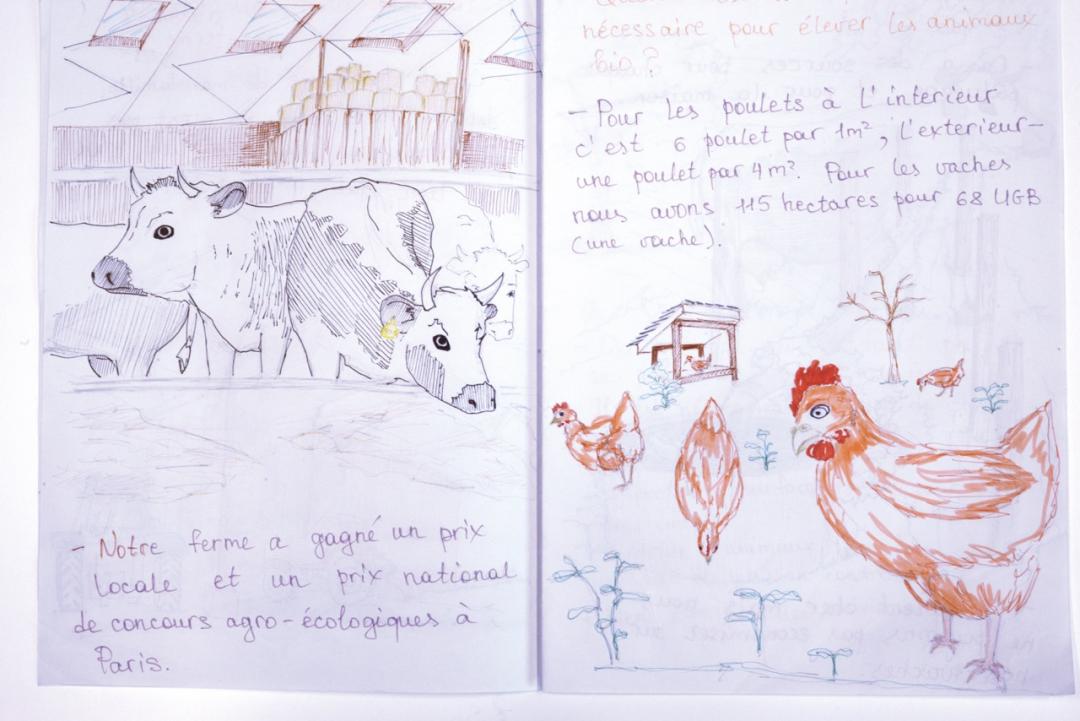 - Notre ferme a gagné un prix
locale et un prix national
de concours agro-écologiques à
Paris.
nécessaire pour élever les animaux
bio ?
- Pour les poulets à l'interieur
c'est 6 poulet par 1m², l'exterieur-
une poulet par 4m². Pour les vaches
nous avons 115 hectares pour 68 UGB
(une vache).